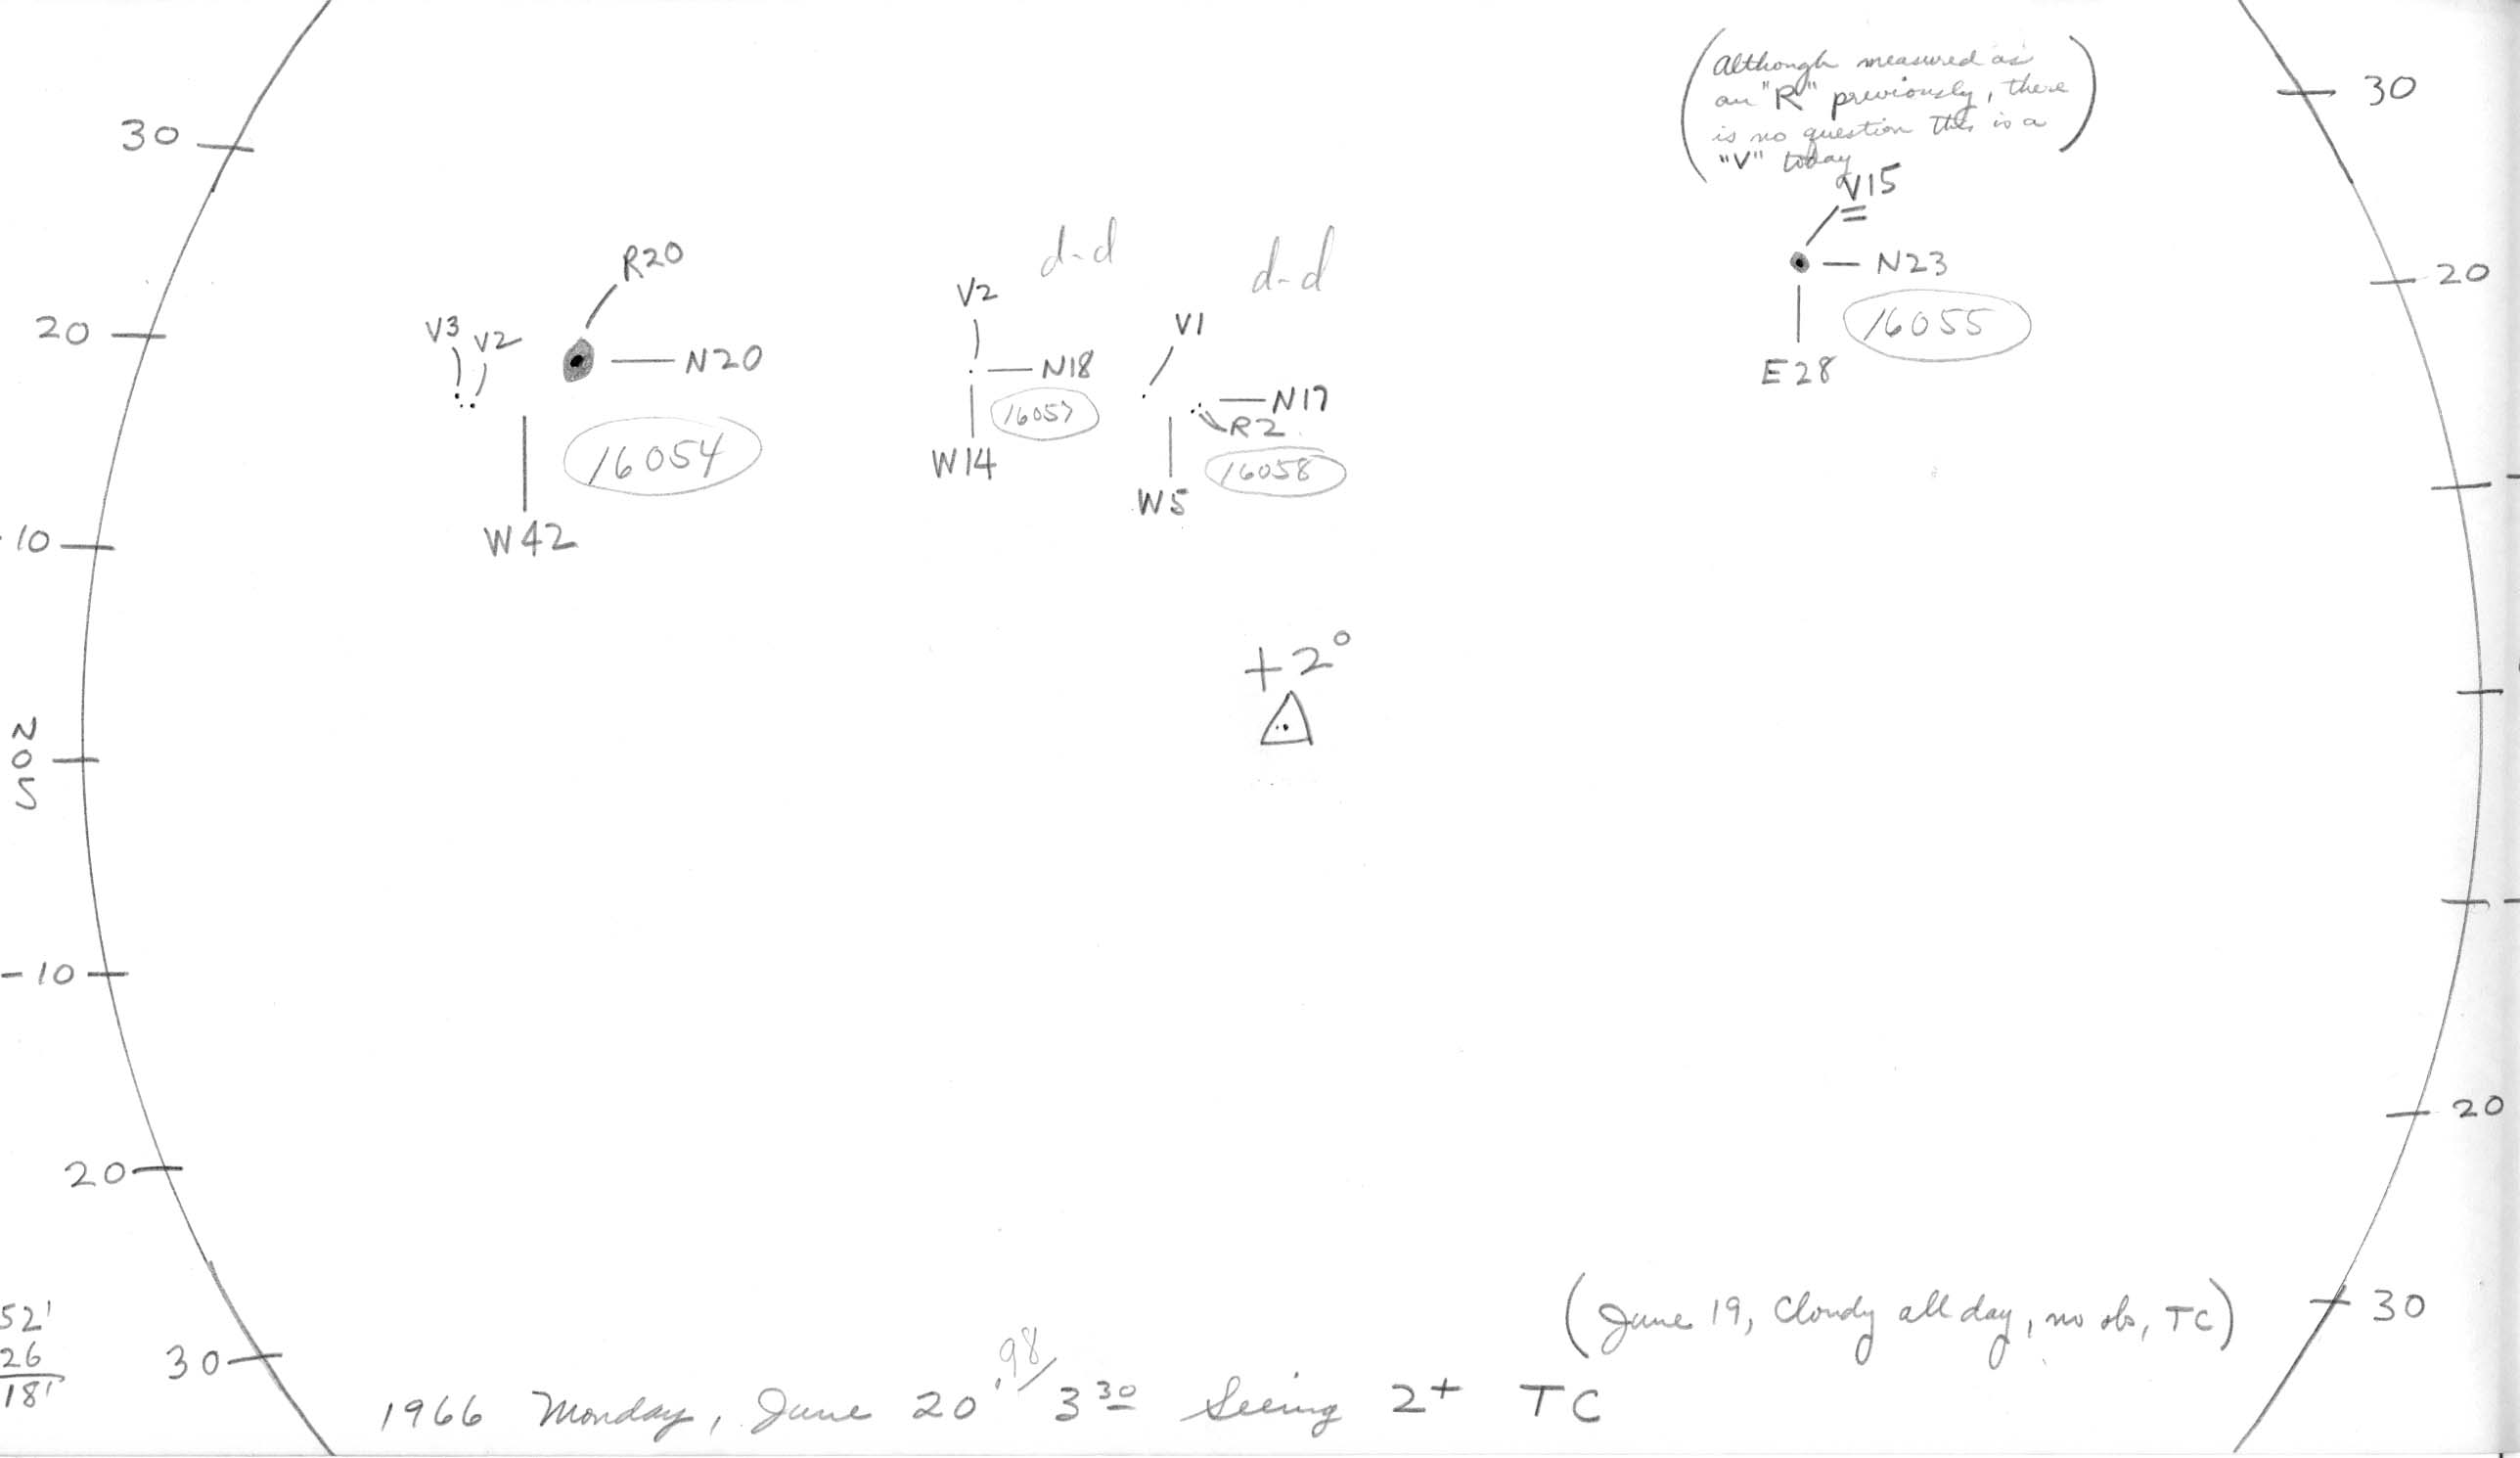 (Although measured as
an "R" previously, there
is no question this is a
"V" today)
V15
N23
16055
E28
30
20
10
N
0
S
-10
20
30
R20
V3 V2
N20
16054
W42
d-d
V2
N18
16057
W14
d-d
V1
N17
R2
16058
W5
+2°
30
20
20
30
52'
26
18'
(June 19, Cloudy all day, no obs, TC)
1966 Monday, June 20 .98/ 3 30 Seeing 2+ TC